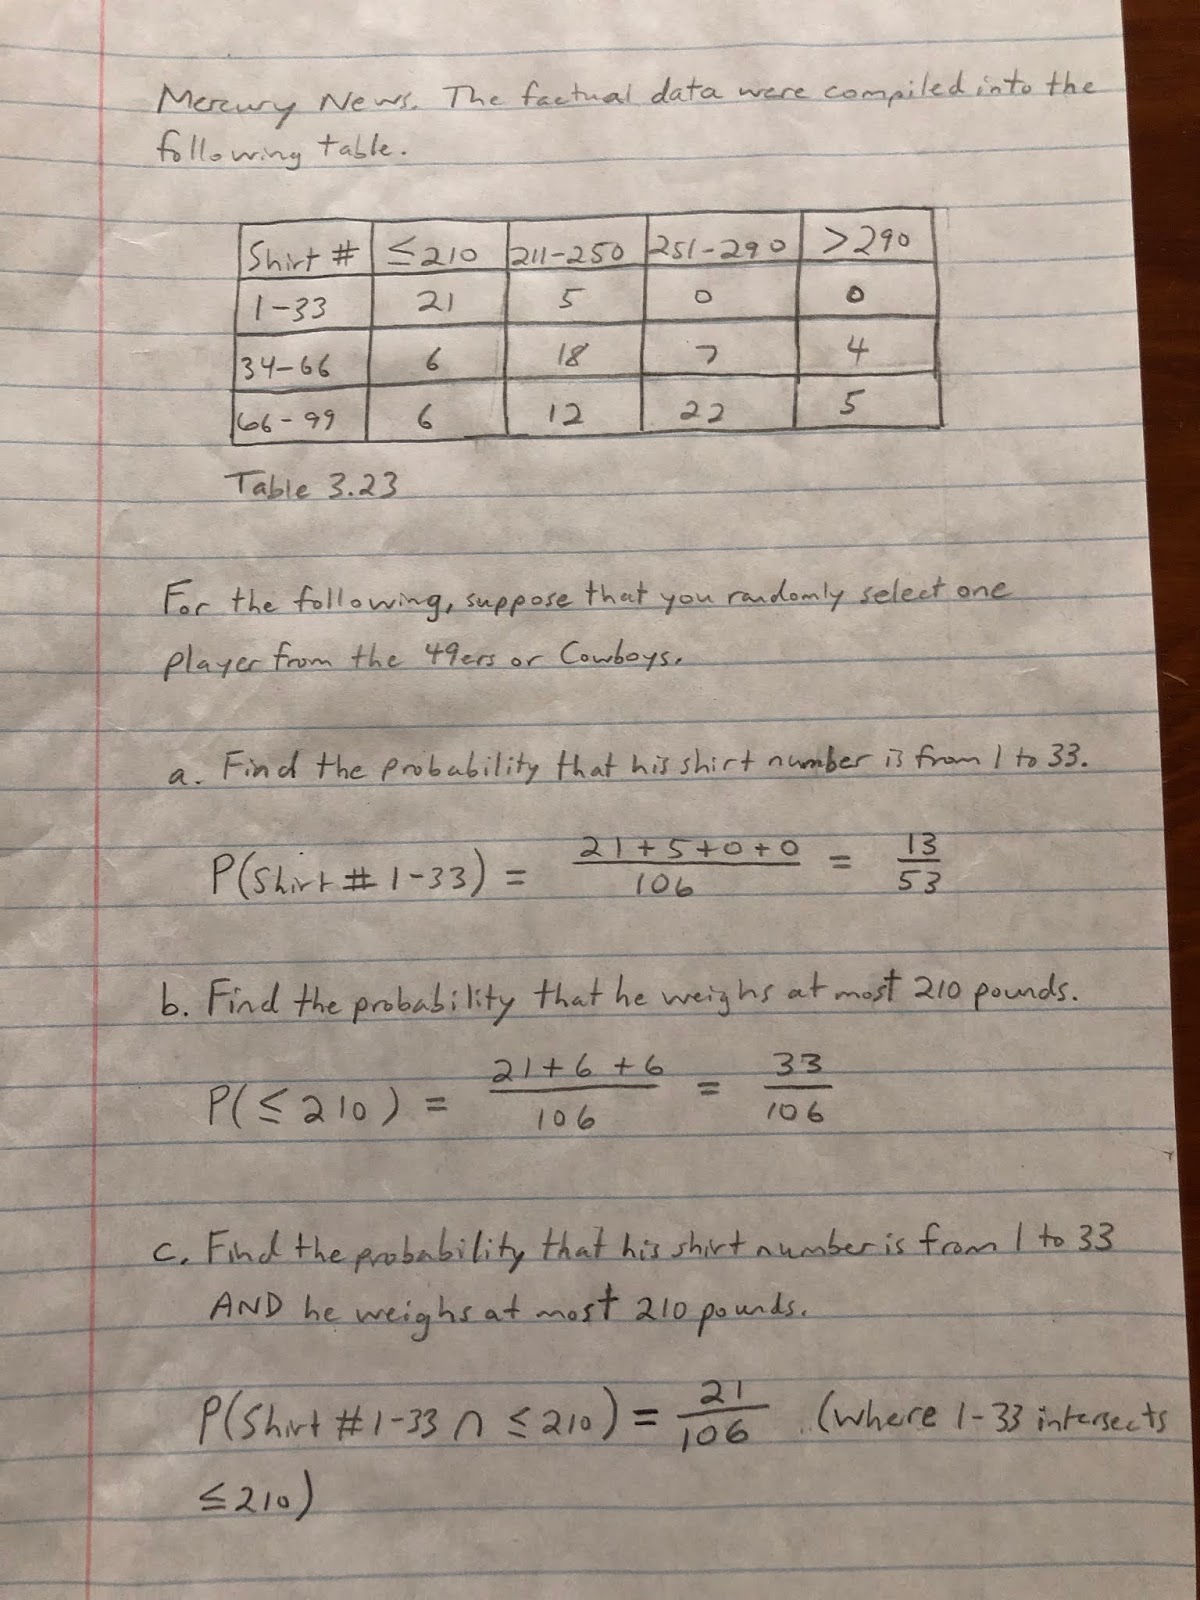 Mercury News. The factual data were compiled into the
following table.
Shirt # ≤210 211-250 251-290 >290
1-33 21 5 0 0
34-66 6 18 7 4
66-99 6 12 22 5
Table 3.23
For the following, suppose that you randomly select one
player from the 49ers or Cowboys.
a. Find the probability that his shirt number is from 1 to 33.
P(Shirt # 1-33) = 21+5+0+0/106 = 13/53
b. Find the probability that he weighs at most 210 pounds.
P(≤210) = 21+6+6/106 = 33/106
c. Find the probability that his shirt number is from 1 to 33
AND he weighs at most 210 pounds.
P(Shirt #1-33 ∩ ≤210) = 21/106 (where 1-33 intersects
≤210)